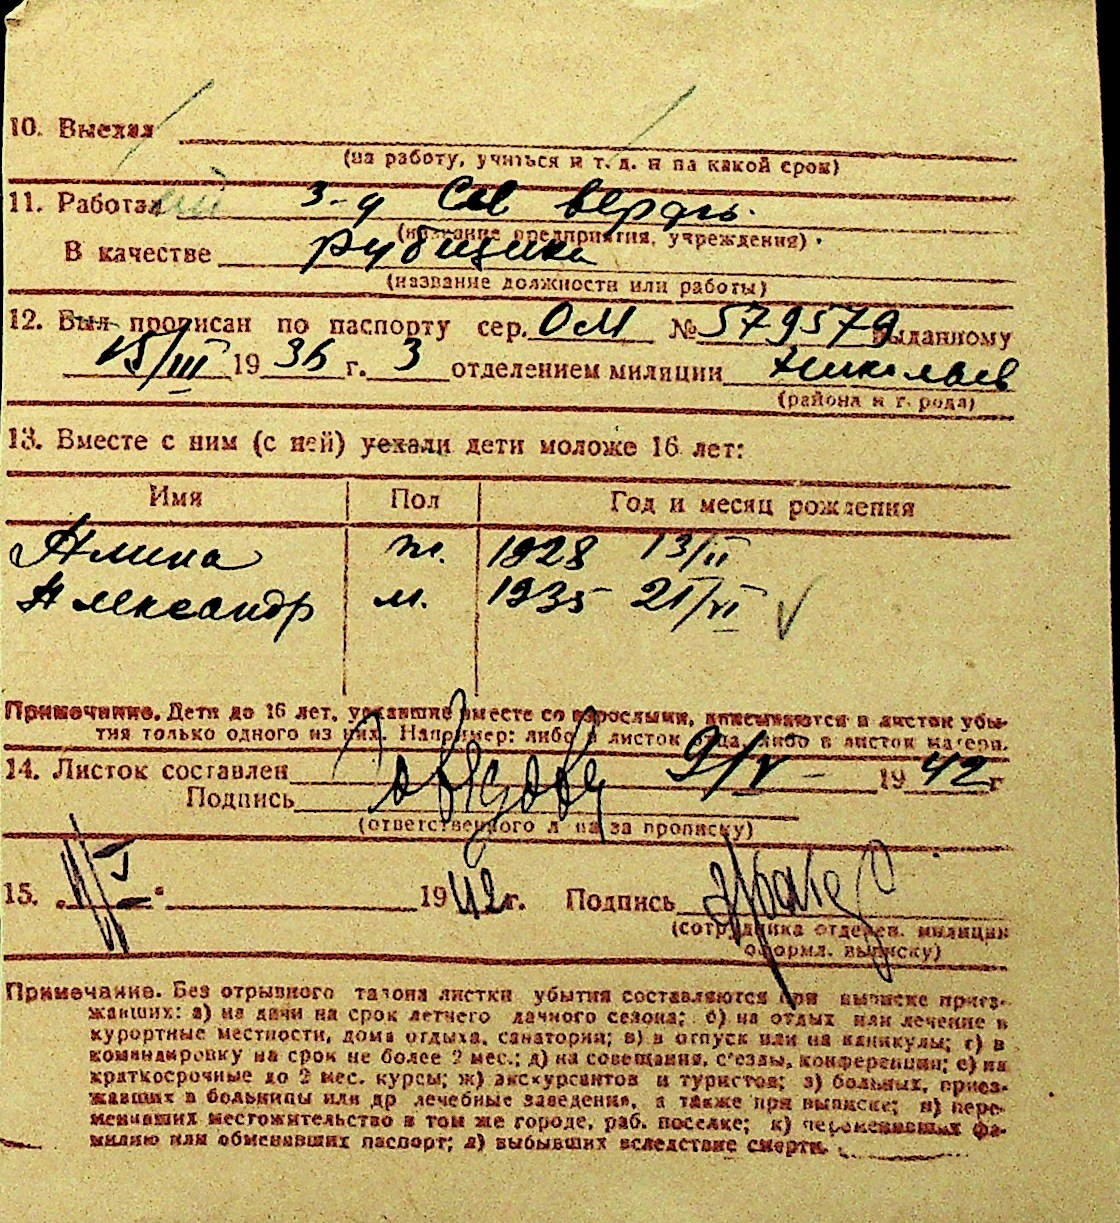 10. Выехал
(на работу, учиться и т. д. и на какой срок)
11. Работал з-д Сев верфь.
(название предприятия, учреждения)
В качестве рубщика
(название должности или работы)
12. Был прописан по паспорту сер. ОМ № 579579 выданному
15/III 1936 г. 3 отделением милиции Николаев
(района и города)
13. Вместе с ним (с ней) уехали дети моложе 16 лет:
Имя Пол Год и месяц рождения
ж. 1928 13/II
Александр м. 1935 21/VI
Примечание. Дети до 16 лет, уехавшие вместе со взрослыми, вписываются в листок убы-
тия только одного из них. Например: либо в листок отца, либо в листок матери.
14. Листок составлен 9/V - 1942 г
Подпись
(ответственного лица за прописку)
15. 1942 г. Подпись
(сотрудника отделен. милиции
оформл. выписку)
Примечание. Без отрывного талона листки убытия составляются при выписке приез-
жавших: а) на дачи на срок летнего дачного сезона; б) на отдых или лечение в
курортные местности, дома отдыха, санатории; в) в отпуск или на каникулы; г) в
командировку на срок не более 2 мес.; д) на совещания, с'езды, конференции; е) на
краткосрочные до 2 мес. курсы; ж) экскурсантов и туристов; з) больных, приез-
жавших в больницы или др лечебные заведения, а также при выписке; и) пере-
менивших местожительство в том же городе, раб. поселке; к) переменивших фа-
милию или обменявших паспорт; л) выбывших вследствие смерти.